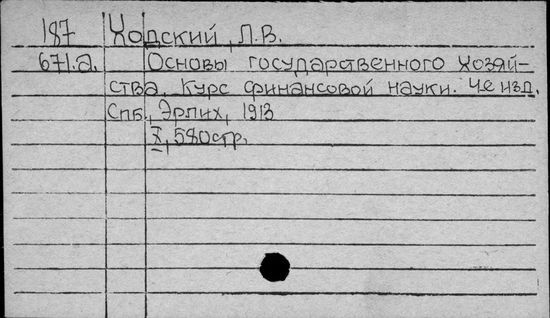 187 Ходский, Л.В.
671.а. Основы государственного хозяй-
ства. Курс финансовой науки. 4е изд.
Спб., Эрлих, 1913
X, 580стр.